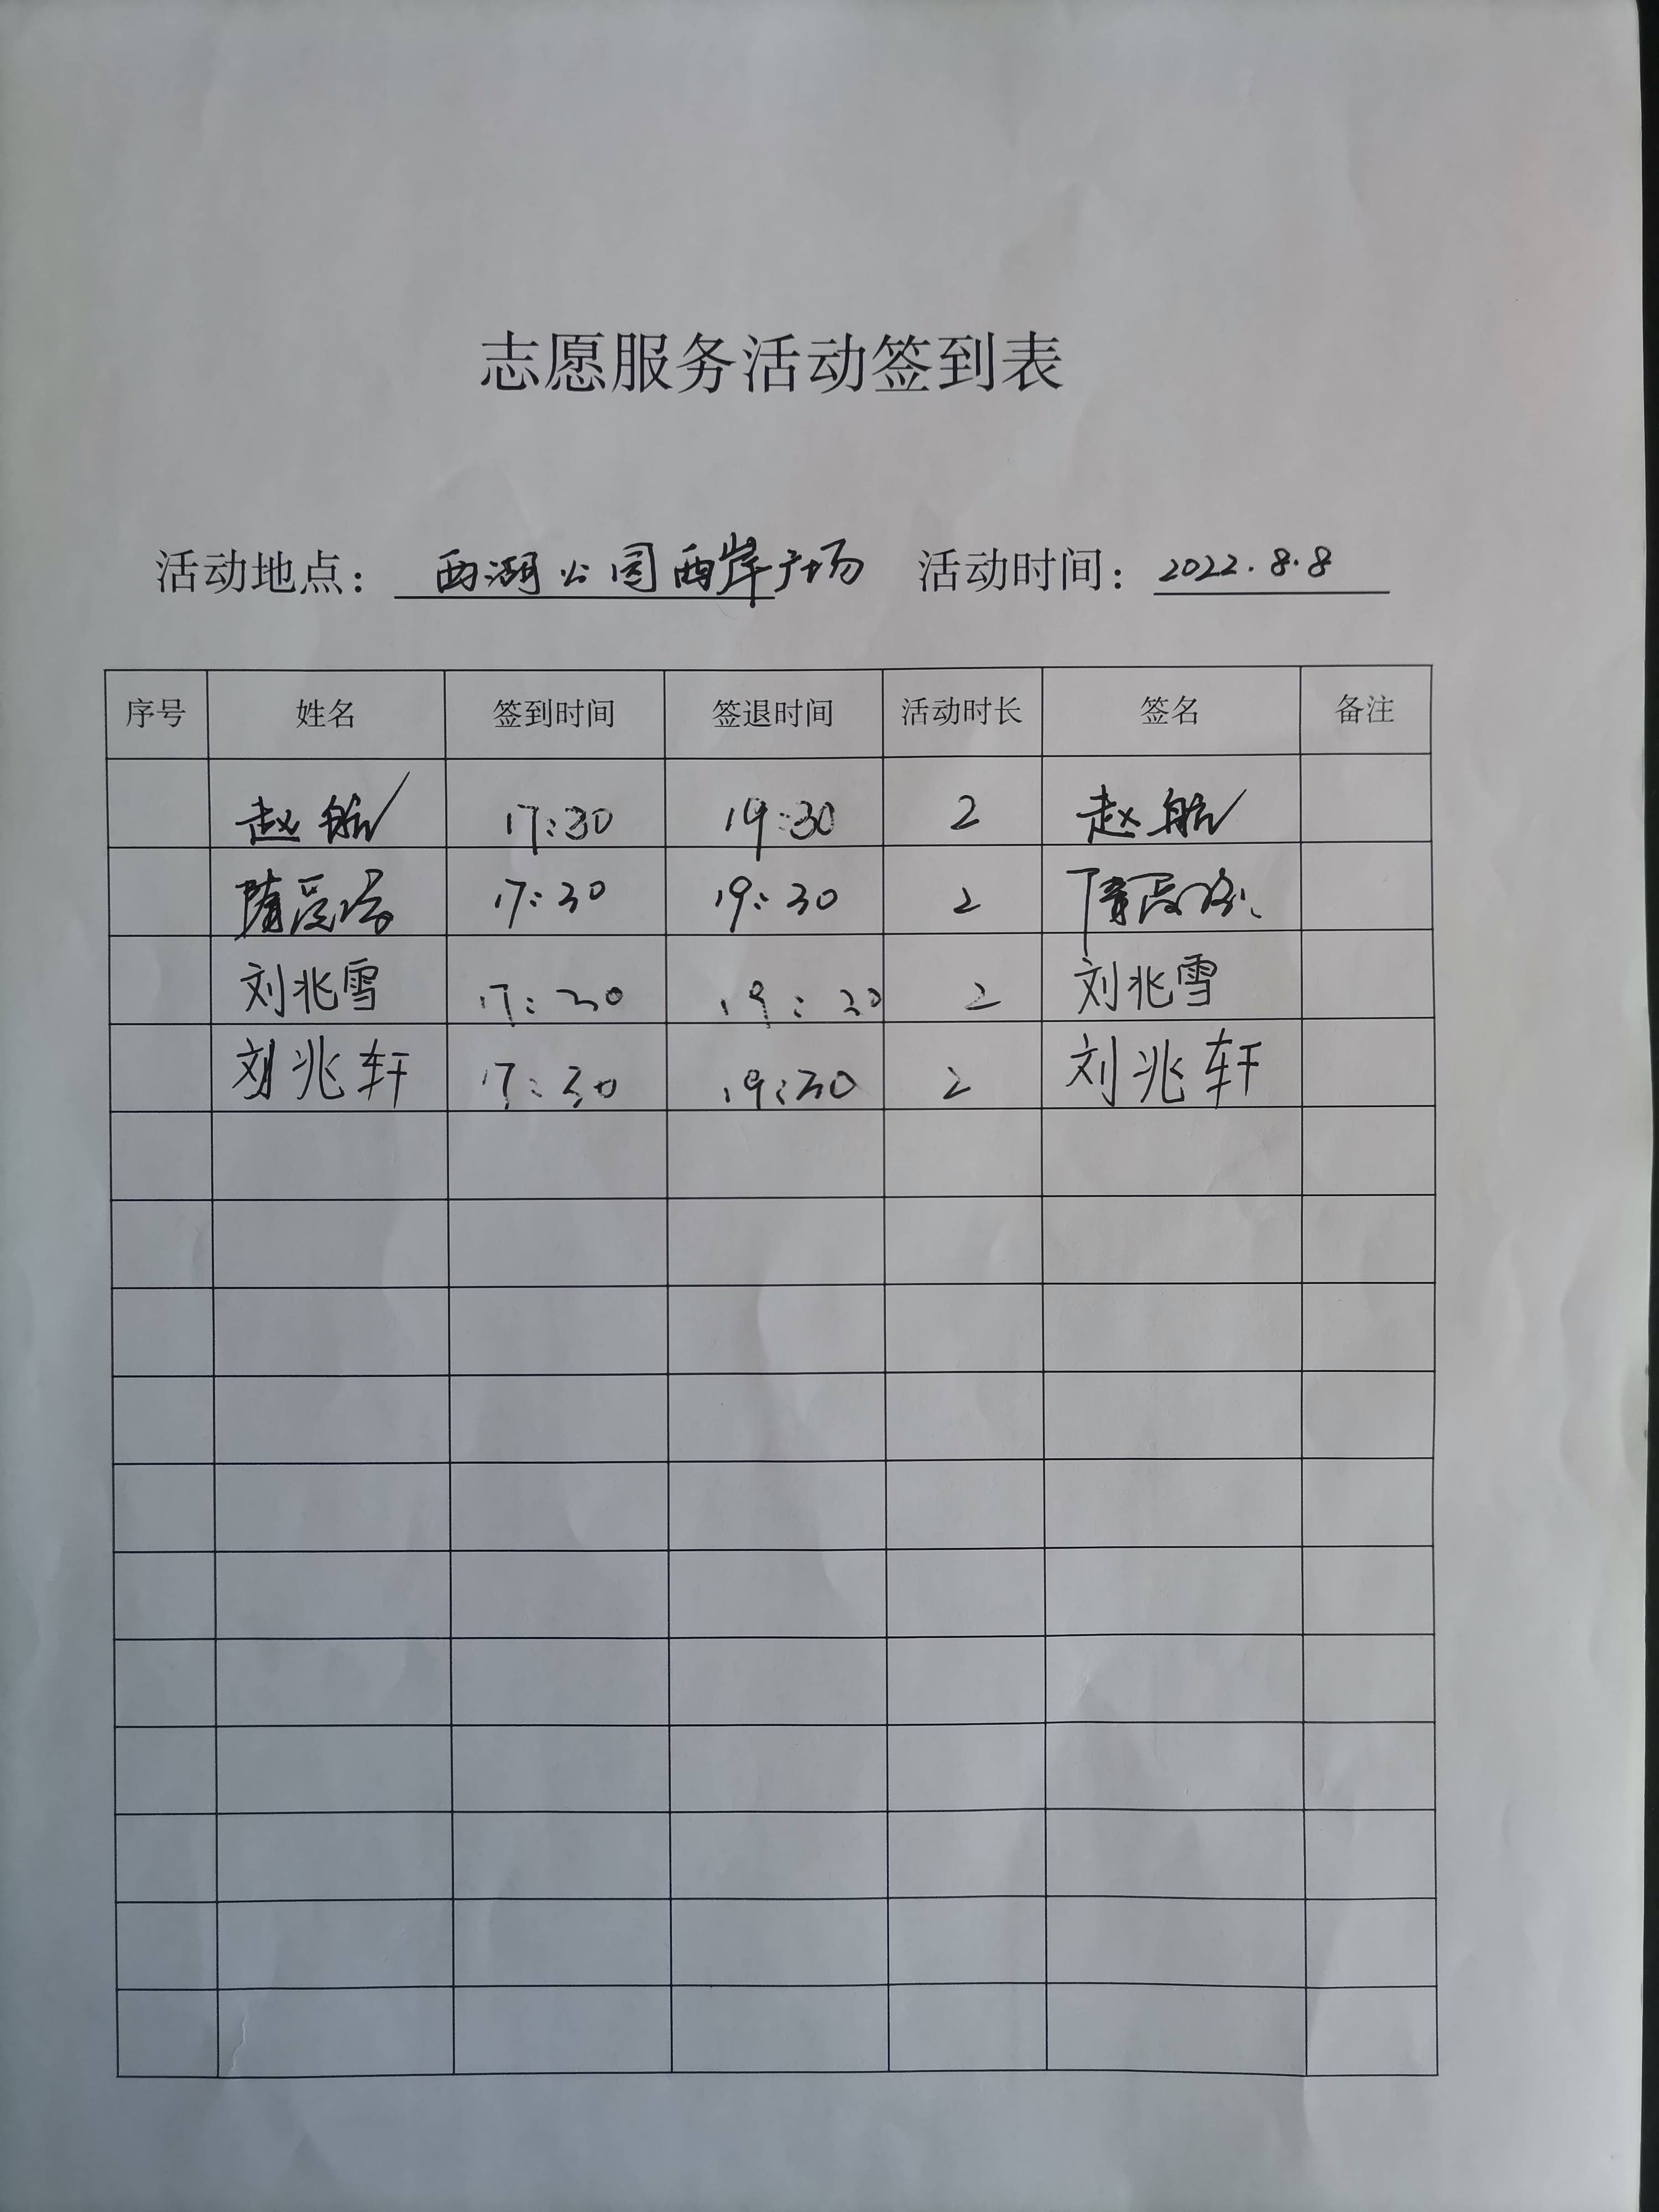 志愿服务活动签到表
活动地点： 西湖公园西岸广场 活动时间： 2022.8.8
序号 姓名 签到时间 签退时间 活动时长 签名 备注
赵航 17:30 19:30 2 赵航
隋 17:30 19:30 2 隋
刘兆雪 17:30 19:30 2 刘兆雪
刘兆轩 17:30 19:30 2 刘兆轩